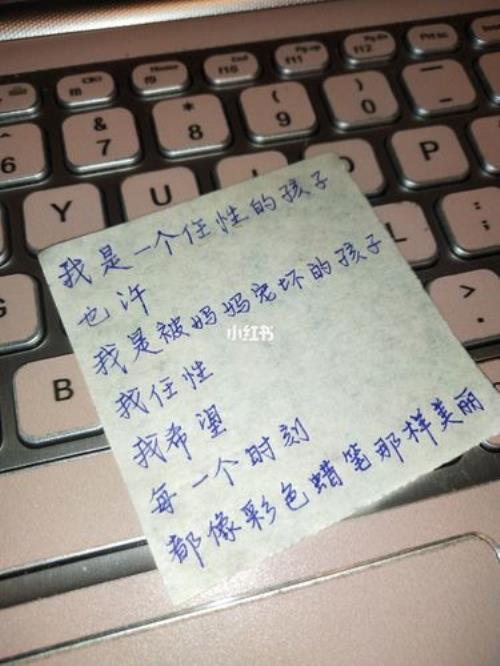 我是一个任性的孩子
也许
我是被妈妈宠坏的孩子
我任性
我希望
每一个时刻
都像彩色蜡笔那样美丽
小红书
F8
F9
Home
F10
End
F11
PgUp
F12
PgDn
PrtSc
Delete
6
&
7
*
8
(
9
)
0
Y
U
O
P
G
L
B